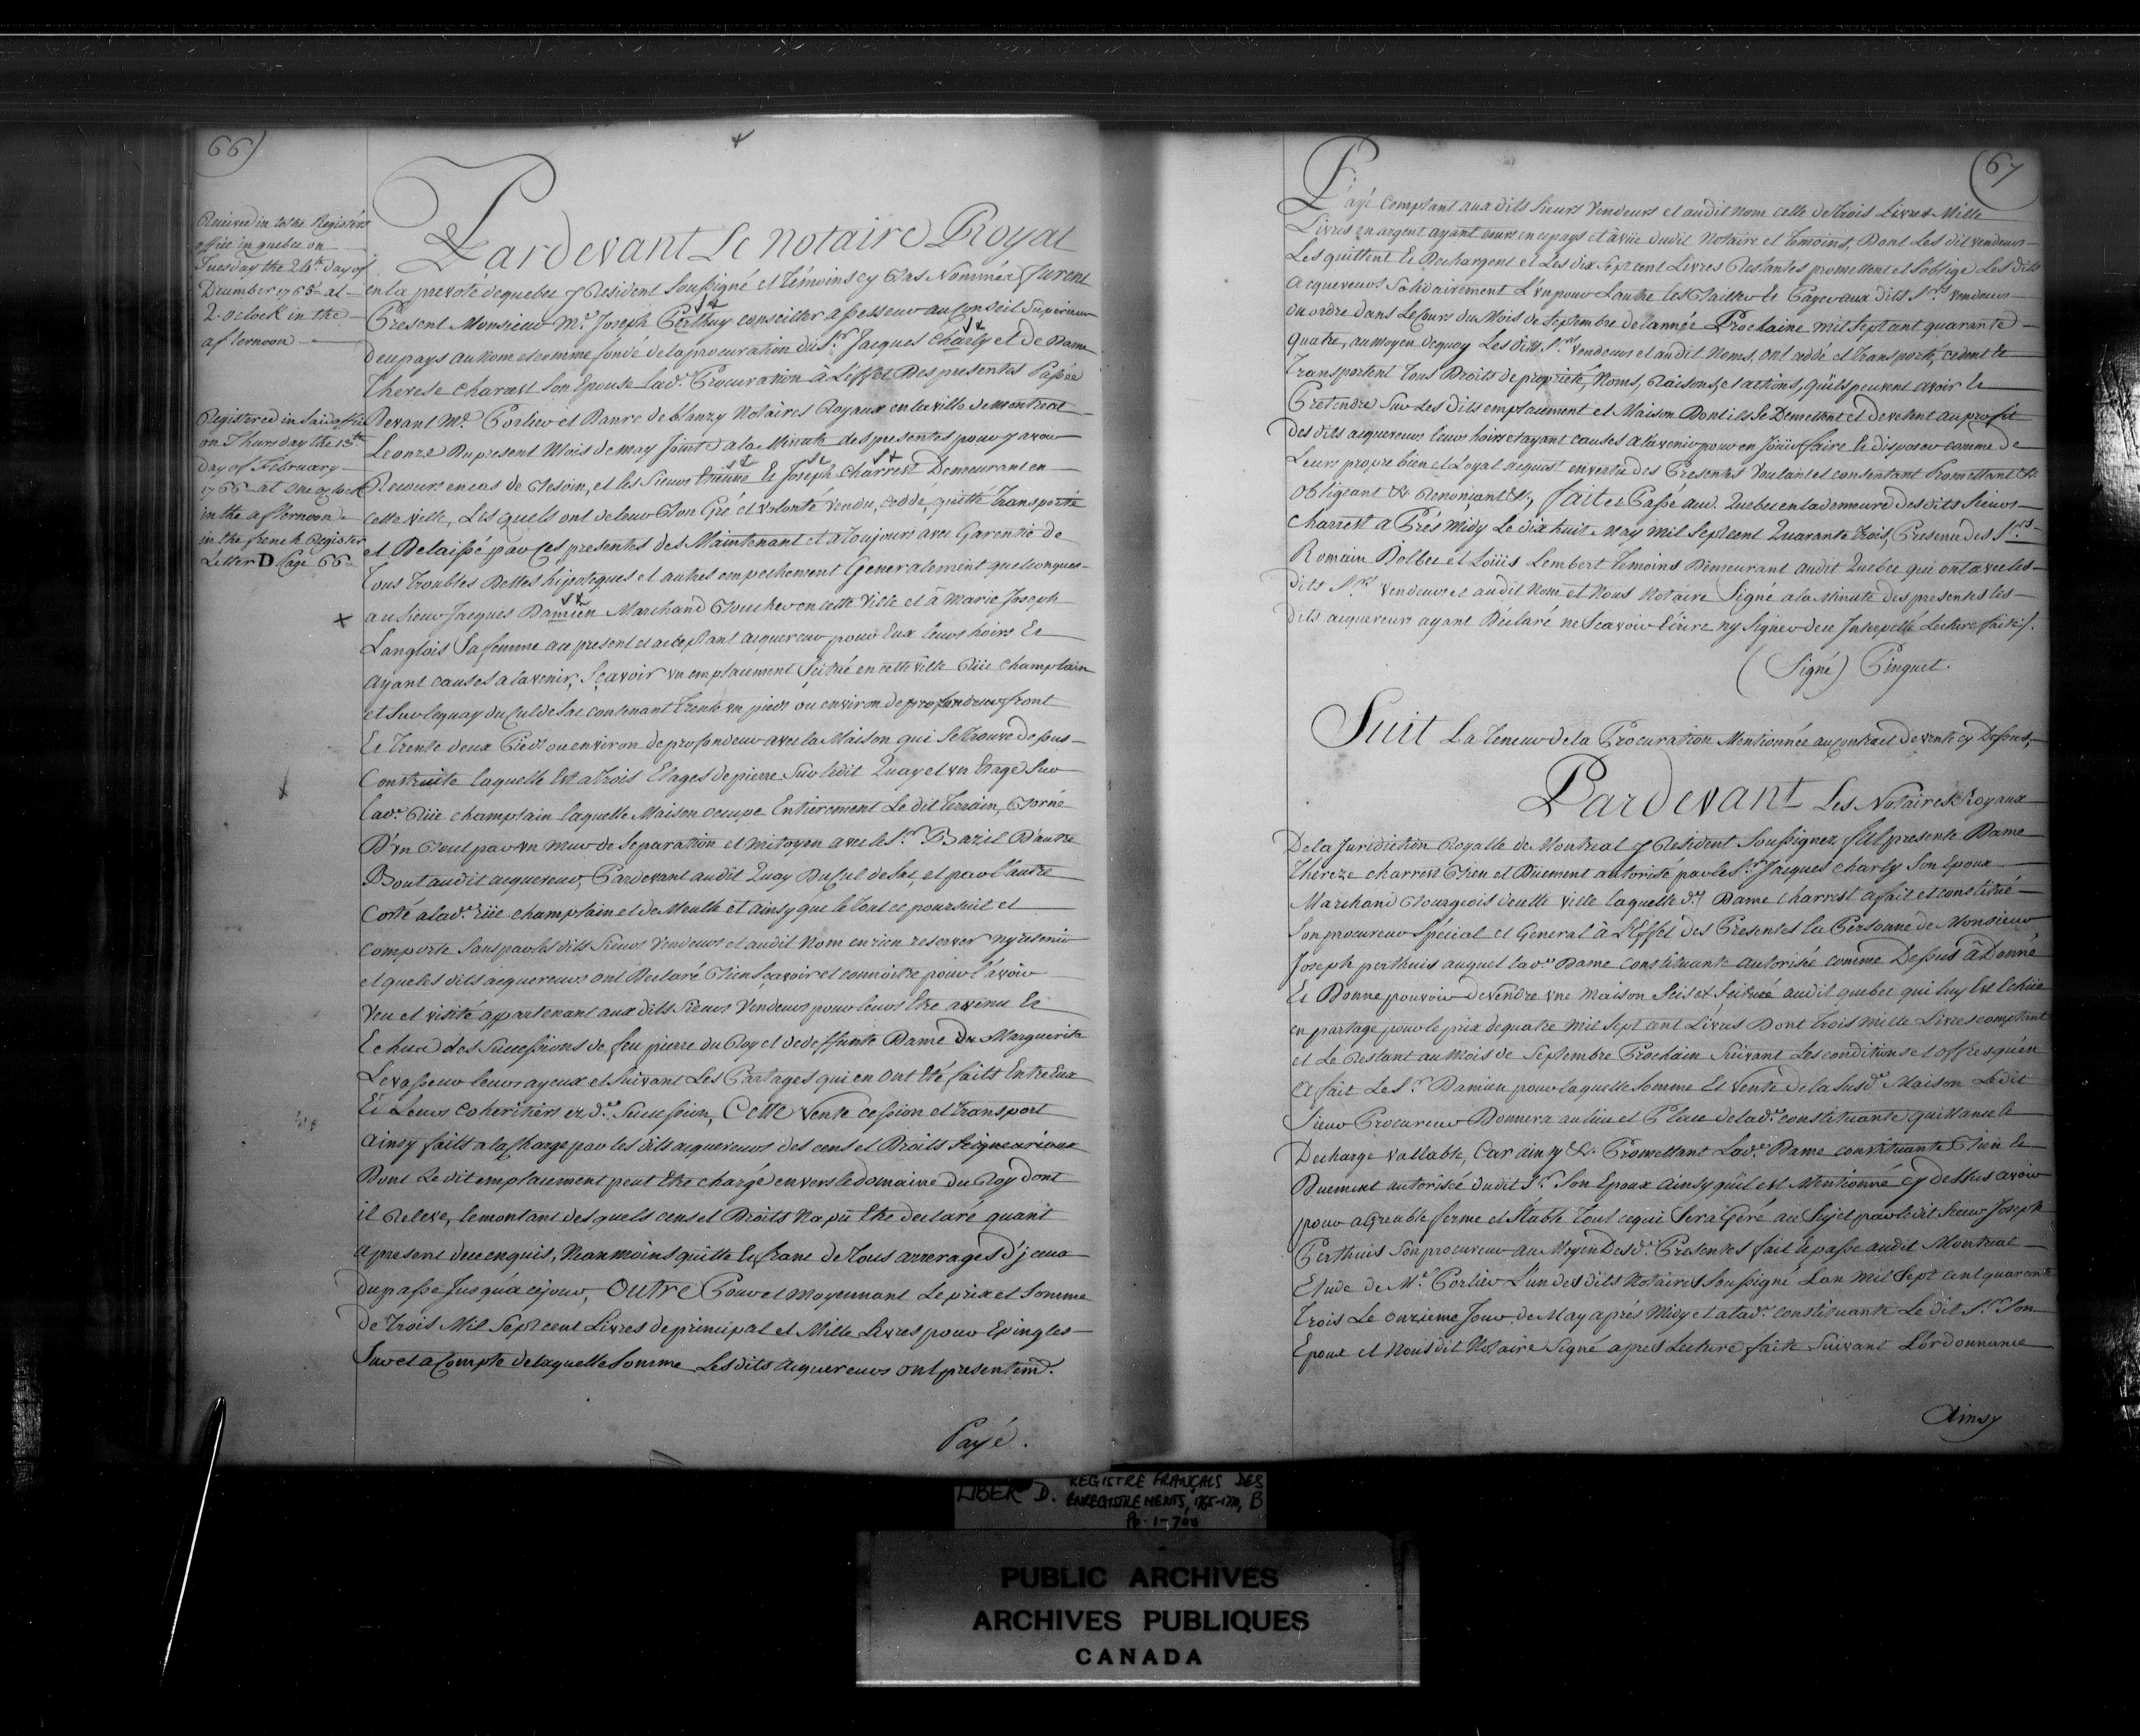 66)
Received in to the Registers
office in quebec on
Tuesday the 24th day of
December 1765 at
2. oclock in the
afternoon
Registered in Said office
on Thursday the 13th
Day of February
1766 at One oclock
in the afternoon
in the french Register
Letter D Page 66
Pardevant Le Notaire Royal
en la prevoté de quebec y Resident Soussigné et Témoins cy Bas Nommés furent
Present Monsieur Me. Joseph Perthuy conseiller assesseur au Conseil Superieur
de ce pays au nom et comme fondé de la procuration du Sr. Jacques Charly et de Dame
Therese charest Son Epouse lade. Procuration à L'effet Des presentes Passée
Devant Me. Porlier et Danré de blanzy Notaires Royaux en la ville de montreal
Le onze Du present Mois de may Jointe a la Minute des presentes pour y avoir
Recours en cas de Besoin, et les Sieurs Etienne Et Joseph Charrest Demeurant en
cette ville, Les quels ont de leur Bon Gré et volonté vendu, ceddé, quitté Transporté
et Delaissé par ces presentes des Maintenant et a Toujours avec Garentie de
Tous Troubles Dettes hipoteques et autres empechement Generalement quelconques
au Sieur Jacques Damien Marchand Boucher en cette Ville et à Marie Joseph
Langlois Sa femme au present et acceptant acquereur pour Eux leurs hoirs Et
ayant causes a lavenir, Sçavoir un emplacement Scitué en cette ville Rüe champlain
et Sur le quay du Cul de Sac contenant Trente un pieds ou environ de profondeur front
Et Trente deux Pieds ou environ de profondeur avec la Maison qui Se trouve dessus
Construite laquelle Est a Trois Etages de pierre Sur ledit Quay et un Etage Sur
lade. Rüe champlain laquelle Maison occupe Entierement Le dit Terrain, Borné
D'un Bout par un mur de Separation et mitoyen avec le Sr. Bazil D'autre
Bout audit acquereur, Pardevant audit Quay Du Cul de Sac, et par l'autre
Coté a lade. rüe champlain et de Meulle et ainsy que le Tout ce poursuit et
comporte Sans par les dits Sieurs Vendeurs et audit Nom en rien reserver ny retenir
et que les dits acquereurs ont Declaré Bien Sçavoir et connoitre pour l'avoir
Veu et visité appartenant aux dits Sieurs Vendeurs pour leurs Etre avenu Et
Echue des Successions de feu pierre du Roy et de deffunte Dame du Marguerite
Levasseur leurs ayeux et Suivant Les Partages qui en Ont Eté faits Entre Eux
Et Leurs Coheritiers es de. Succession, Cette Vente cession et Transport
ainsy faits a la Charge par les dits acquereurs des cens et Droits Seigneuriaux
Dont Le dit emplacement peut Etre chargé envers le domaine Du Roy dont
il Releve, le montant des quels cens et Droits Na pû Etre declaré quant
a present de ce enquis, Neanmoins quitte Et franc de Tous arrerages D'jceux
du passe Jusqu'a ce jour, Outre Pour et Moyennant Le prix et Somme
De Trois Mil Sept cent Livres de principal et Mille Livres pour Epingles
Sur et a Compte de laquelle Somme Les dits acquereurs ont presentemt.
Payé.
(67
Payé comptant aux dits Sieurs Vendeurs et audit Nom celle de Trois Livres Mille
Livres en argent ayant cours en ce pays et à vüe dudit Notaire et Temoins, Dont Les dit vendeurs
Les quittent Et Dechargent et Les dix Sept cent Livres Restantes promettent et S'oblige Les dits
acquereurs Solidairement L'un pour L'autre Les Bailler Et Payer aux dits Srs. vendeurs
ou ordre dans Le Cours du Mois de Septembre de lannée Prochaine mil Sept cent quarante
quatre, au moyen dequoy Les dits Srs. Vendeurs et audit Noms, Ont ceddé et Transporté, cedent Et
Transportent Tous Droits de propriété, Noms, Raisons, et actions, qu'ils peuvent avoir Et
Pretendre Sur Les dits emplacement et Maison Dont ils Se Demettent et devetent au profit
des dits acquereurs leurs hoirs et ayant causes a lavenir pour en Joüir faire Et disposer comme de
Leur propre bien et Loyal acquest en vertu des Presentes Voulant et consentant Promettant &c.
Obligeant &c. Renonçant &c, fait et Passé aud. Quebec en la demeure des dits Sieurs
Charrest a Prés Midy Le dix huit May mil Sept cent Quarante Trois, Presence des Srs.
Romain Dolbec et Loüis Lembert Temoins Demeurant audit Quebec qui ont avec les
dits Srs. Vendeurs et audit Nom et Nous Notaire Signé a la Minute des presentes les
dits acquereurs ayant Déclaré ne Scavoir Ecrire ny Signer de ce Interpellé Lecture faite /.
(Signé) Pinguet.
Suit La Teneur de la Procuration Mentionnée au Contract de vente cy Dessus,
Pardevant Les Notaires Royaux
De la Juridiction Royalle de Montreal y Resident Soussignez fut presente Dame
Thereze charrest Bien et Düement autorisé par le Sr. Jacques Charly Son Epoux
Marchand Bourgeois de cette ville laquelle de. Dame Charrest a fait et constitué
Son procureur Special et General à L'Effet des Presentes la Personne de Monsieur
Joseph perthuis auquel lade. Dame Constituante autorisée comme Dessus à Donné
Et Donne pouvoir de vendre une Maison Sise et Scituée audit quebec qui luy Est Echüe
en partage pour le prix de quatre Mil Sept cent Livres Dont Trois Mille Livres comptant
et Le Restant au Mois de Septembre Prochain Suivant Les conditions et offres qu'en
a fait Le Sr. Damien pour laquelle Somme Et Vente de la Susde. Maison Le dit
Sieur Procureur Donnera au Lieu et Place de lade. constituante quittance Et
Decharge vallable, Car ainsy &c. Promettant Lade. Dame constituante Bien Et
Duement autorisée dudit Sr. Son Epoux ainsy qu'il est Mentionné cy dessus avoir
pour agreable ferme et Stable Tout ce qui Sera Géré au Sujet par le dit Sieur Joseph
Perthuis Son procureur au Moyen Des de. Presentes fait Et passé audit Montreal
Etude de Me. Porlier L'un des dits Notaires Soussigné Lan Mil Sept cent quarante
Trois Le onzieme Jour de May aprés Midy et a lade. constituante Le dit Sr. Son
Epoux et Nous dit Notaire Signé aprés Lecture faite Suivant L'ordonnance
Ainsy
LIBER D. REGISTRE FRANÇAIS DES
ENREGISTREMENTS, 1765-1770, B
Pp. 1-700
PUBLIC ARCHIVES
ARCHIVES PUBLIQUES
CANADA